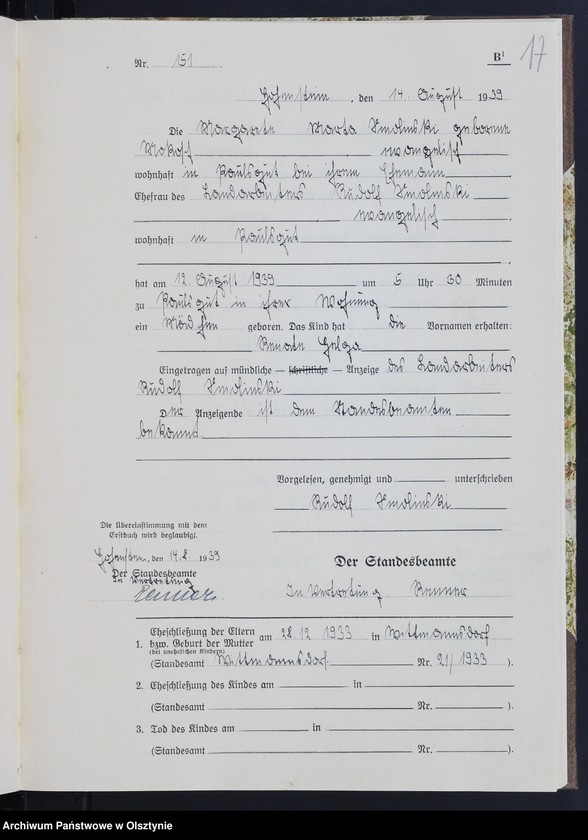 17
Nr. 151 B¹
Hohenstein, den 14. August 1939
Die Margarete Marta Smolinski geborene
evangelisch
wohnhaft in Paulsgut bei ihrem Ehemann
Ehefrau des Landarbeiters Rudolf Smolinski
evangelisch
wohnhaft in Paulsgut
hat am 12. August 1939 um 5 Uhr 30 Minuten
zu Paulsgut in ihrer Wohnung
ein Mädchen geboren. Das Kind hat die Vornamen erhalten:
Renate Helga
Eingetragen auf mündliche — schriftliche — Anzeige des Landarbeiters
Rudolf Smolinski
Der Anzeigende ist dem Standesbeamten
bekannt
Vorgelesen, genehmigt und unterschrieben
Rudolf Smolinski
Die Übereinstimmung mit dem
Erstbuch wird beglaubigt.
Hohenstein, den 14.8. 1939
Der Standesbeamte
In Vertretung
Renner
Der Standesbeamte
In Vertretung Renner
1. Eheschließung der Eltern
bzw. Geburt der Mutter
(bei unehelichen Kindern)
am 28.12.1933 in Wittmannsdorf
(Standesamt Wittmannsdorf Nr. 21/1933 ).
2. Eheschließung des Kindes am in
(Standesamt Nr. ).
3. Tod des Kindes am in
(Standesamt Nr. ).
Archiwum Państwowe w Olsztynie